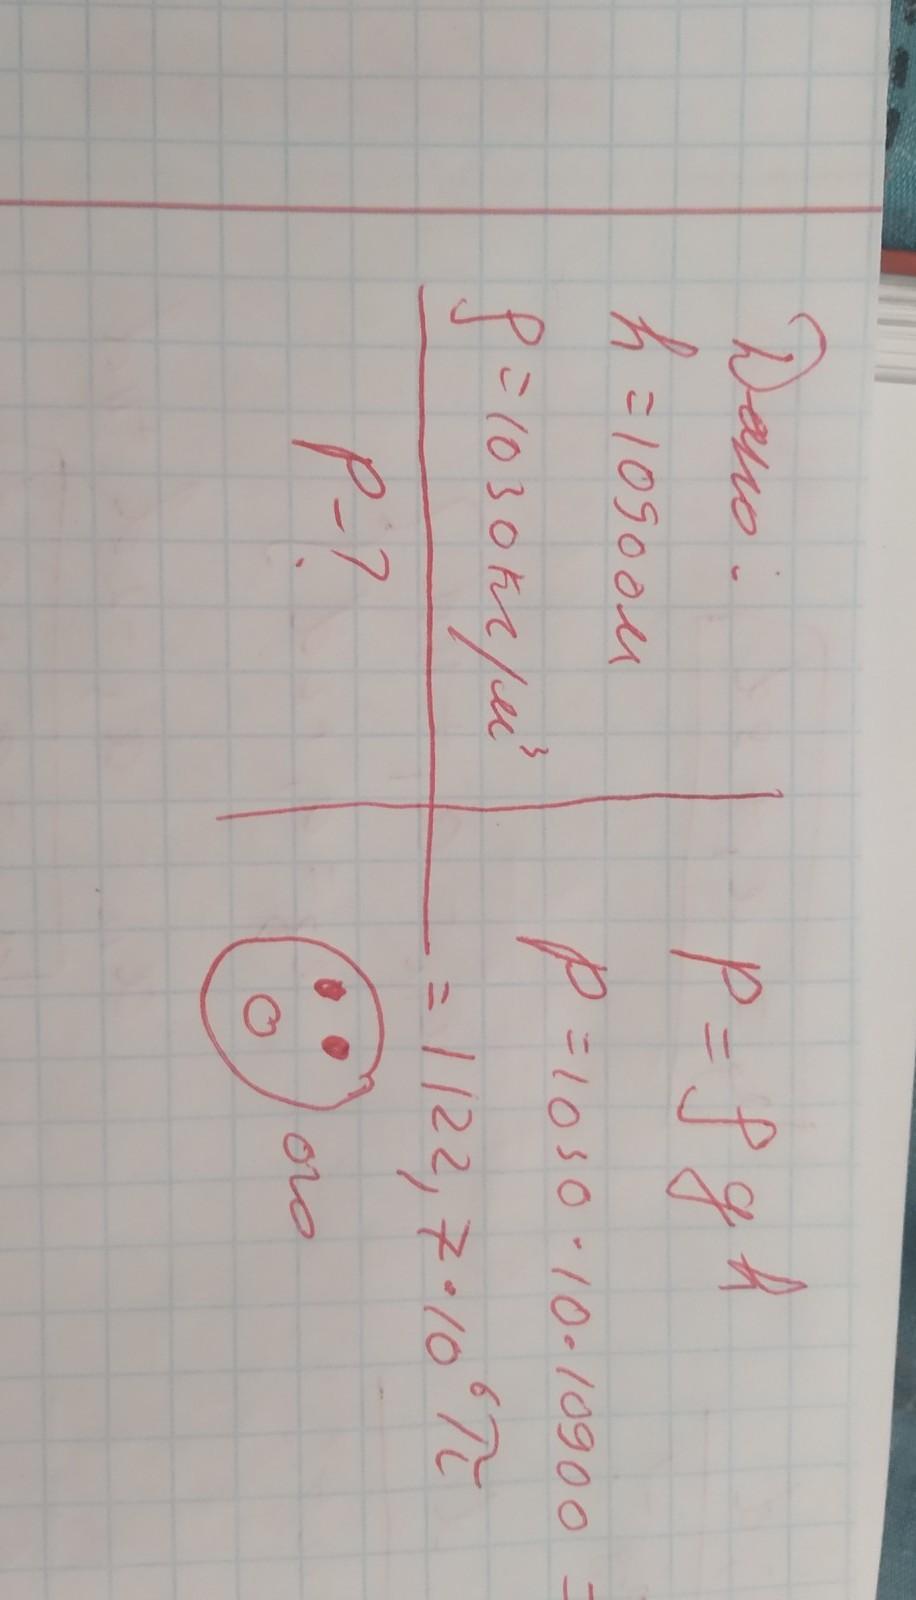 Дано:
h = 10900м
ρ = 1030 кг/м³
p - ?
p = ρgh
p = 1030 · 10 · 10900 =
= 1122,7 · 10⁶ П
ого